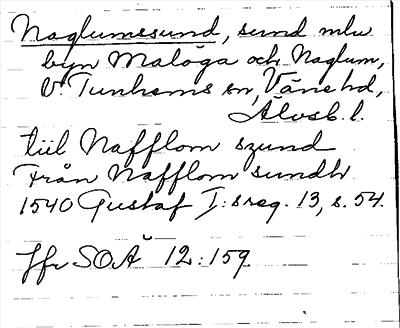 Naglumesund, sund mlu
byn Malöga och Naglum,
V. Tunhems sn, Väne hd,
Älvsb. l.
tiil Nafflom szund
Från Nafflom sundh
1540 Gustaf I:s reg. 13, s. 54.
Jfr SOÄ 12:159